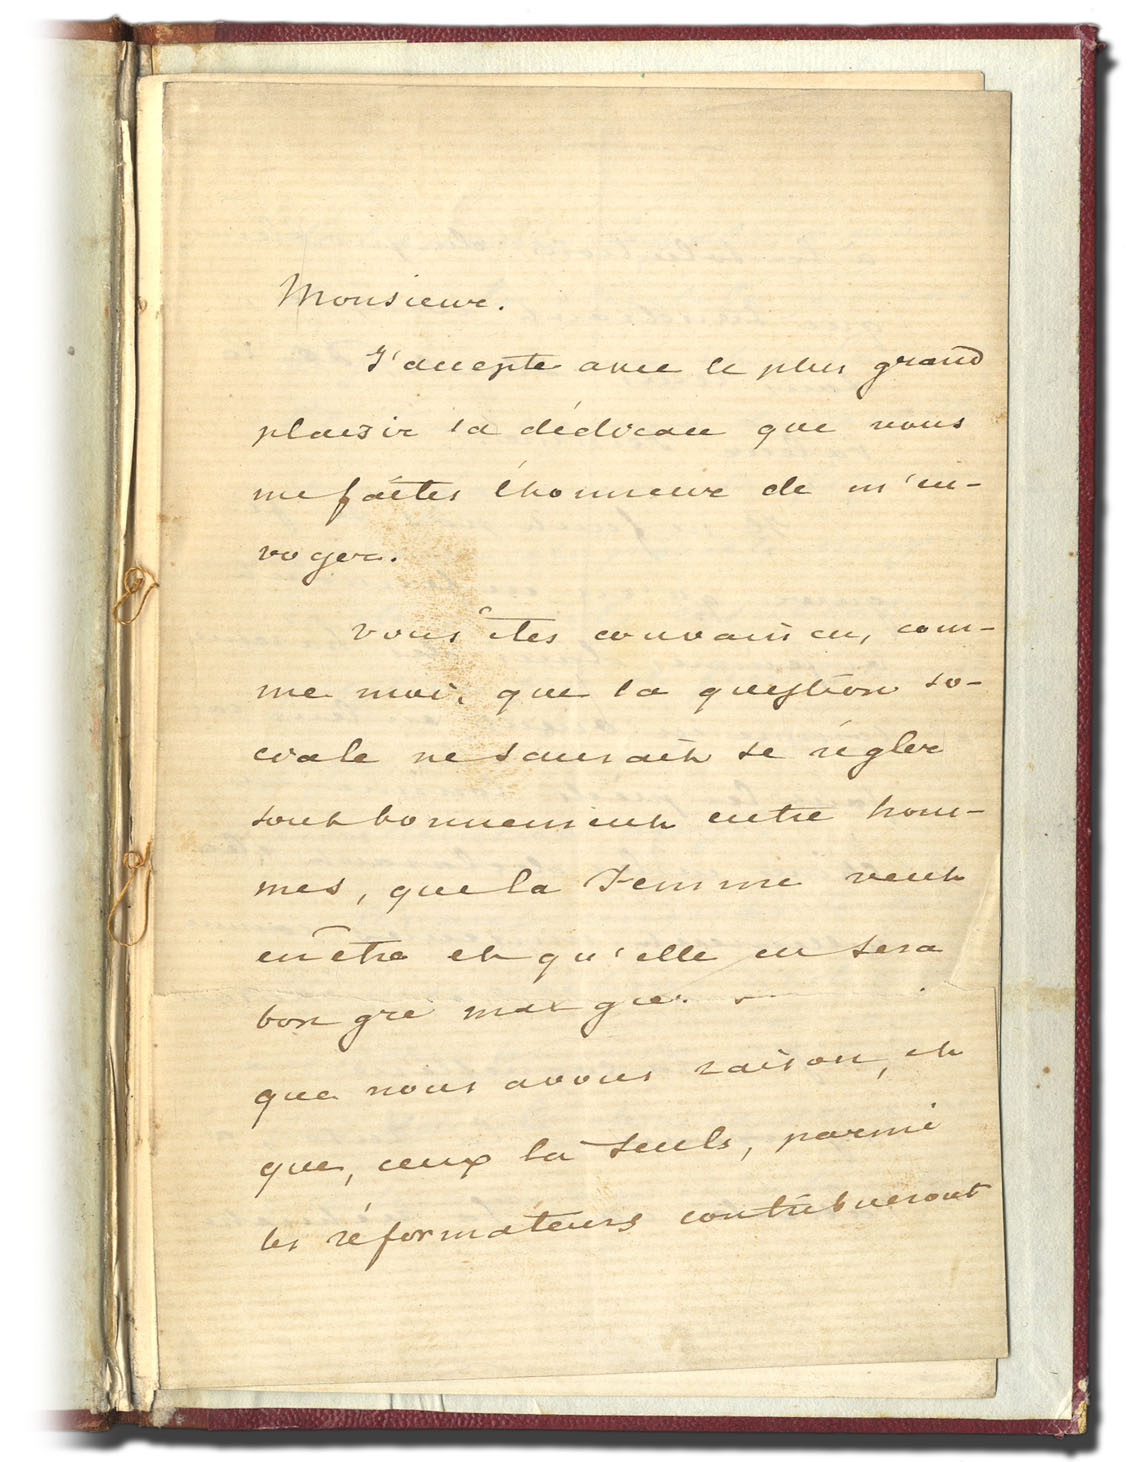 Monsieur.
J'accepte avec le plus grand
plaisir la dédicace que vous
me faites l'honneur de m'en-
voyer.
Vous êtes convaincu, com-
me moi, que la question so-
ciale ne saurait se régler
tout bonnement entre hom-
mes, que la Femme veut
en être et qu'elle en sera
bon gré mal gré. —
que nous avons raison, et
que, ceux là seuls, parmi
les réformateurs contribueront